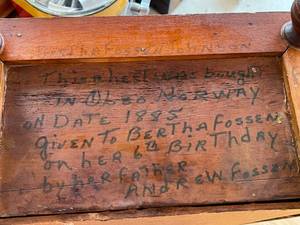 Bertha Fossen Johnson
This wheel was bough
IN Oleo NORWAY
ON DATE 1885
given To BERTHA FOSSEN
on her 6th BIRTHday
by her FATHER
ANDREW FOSSEN